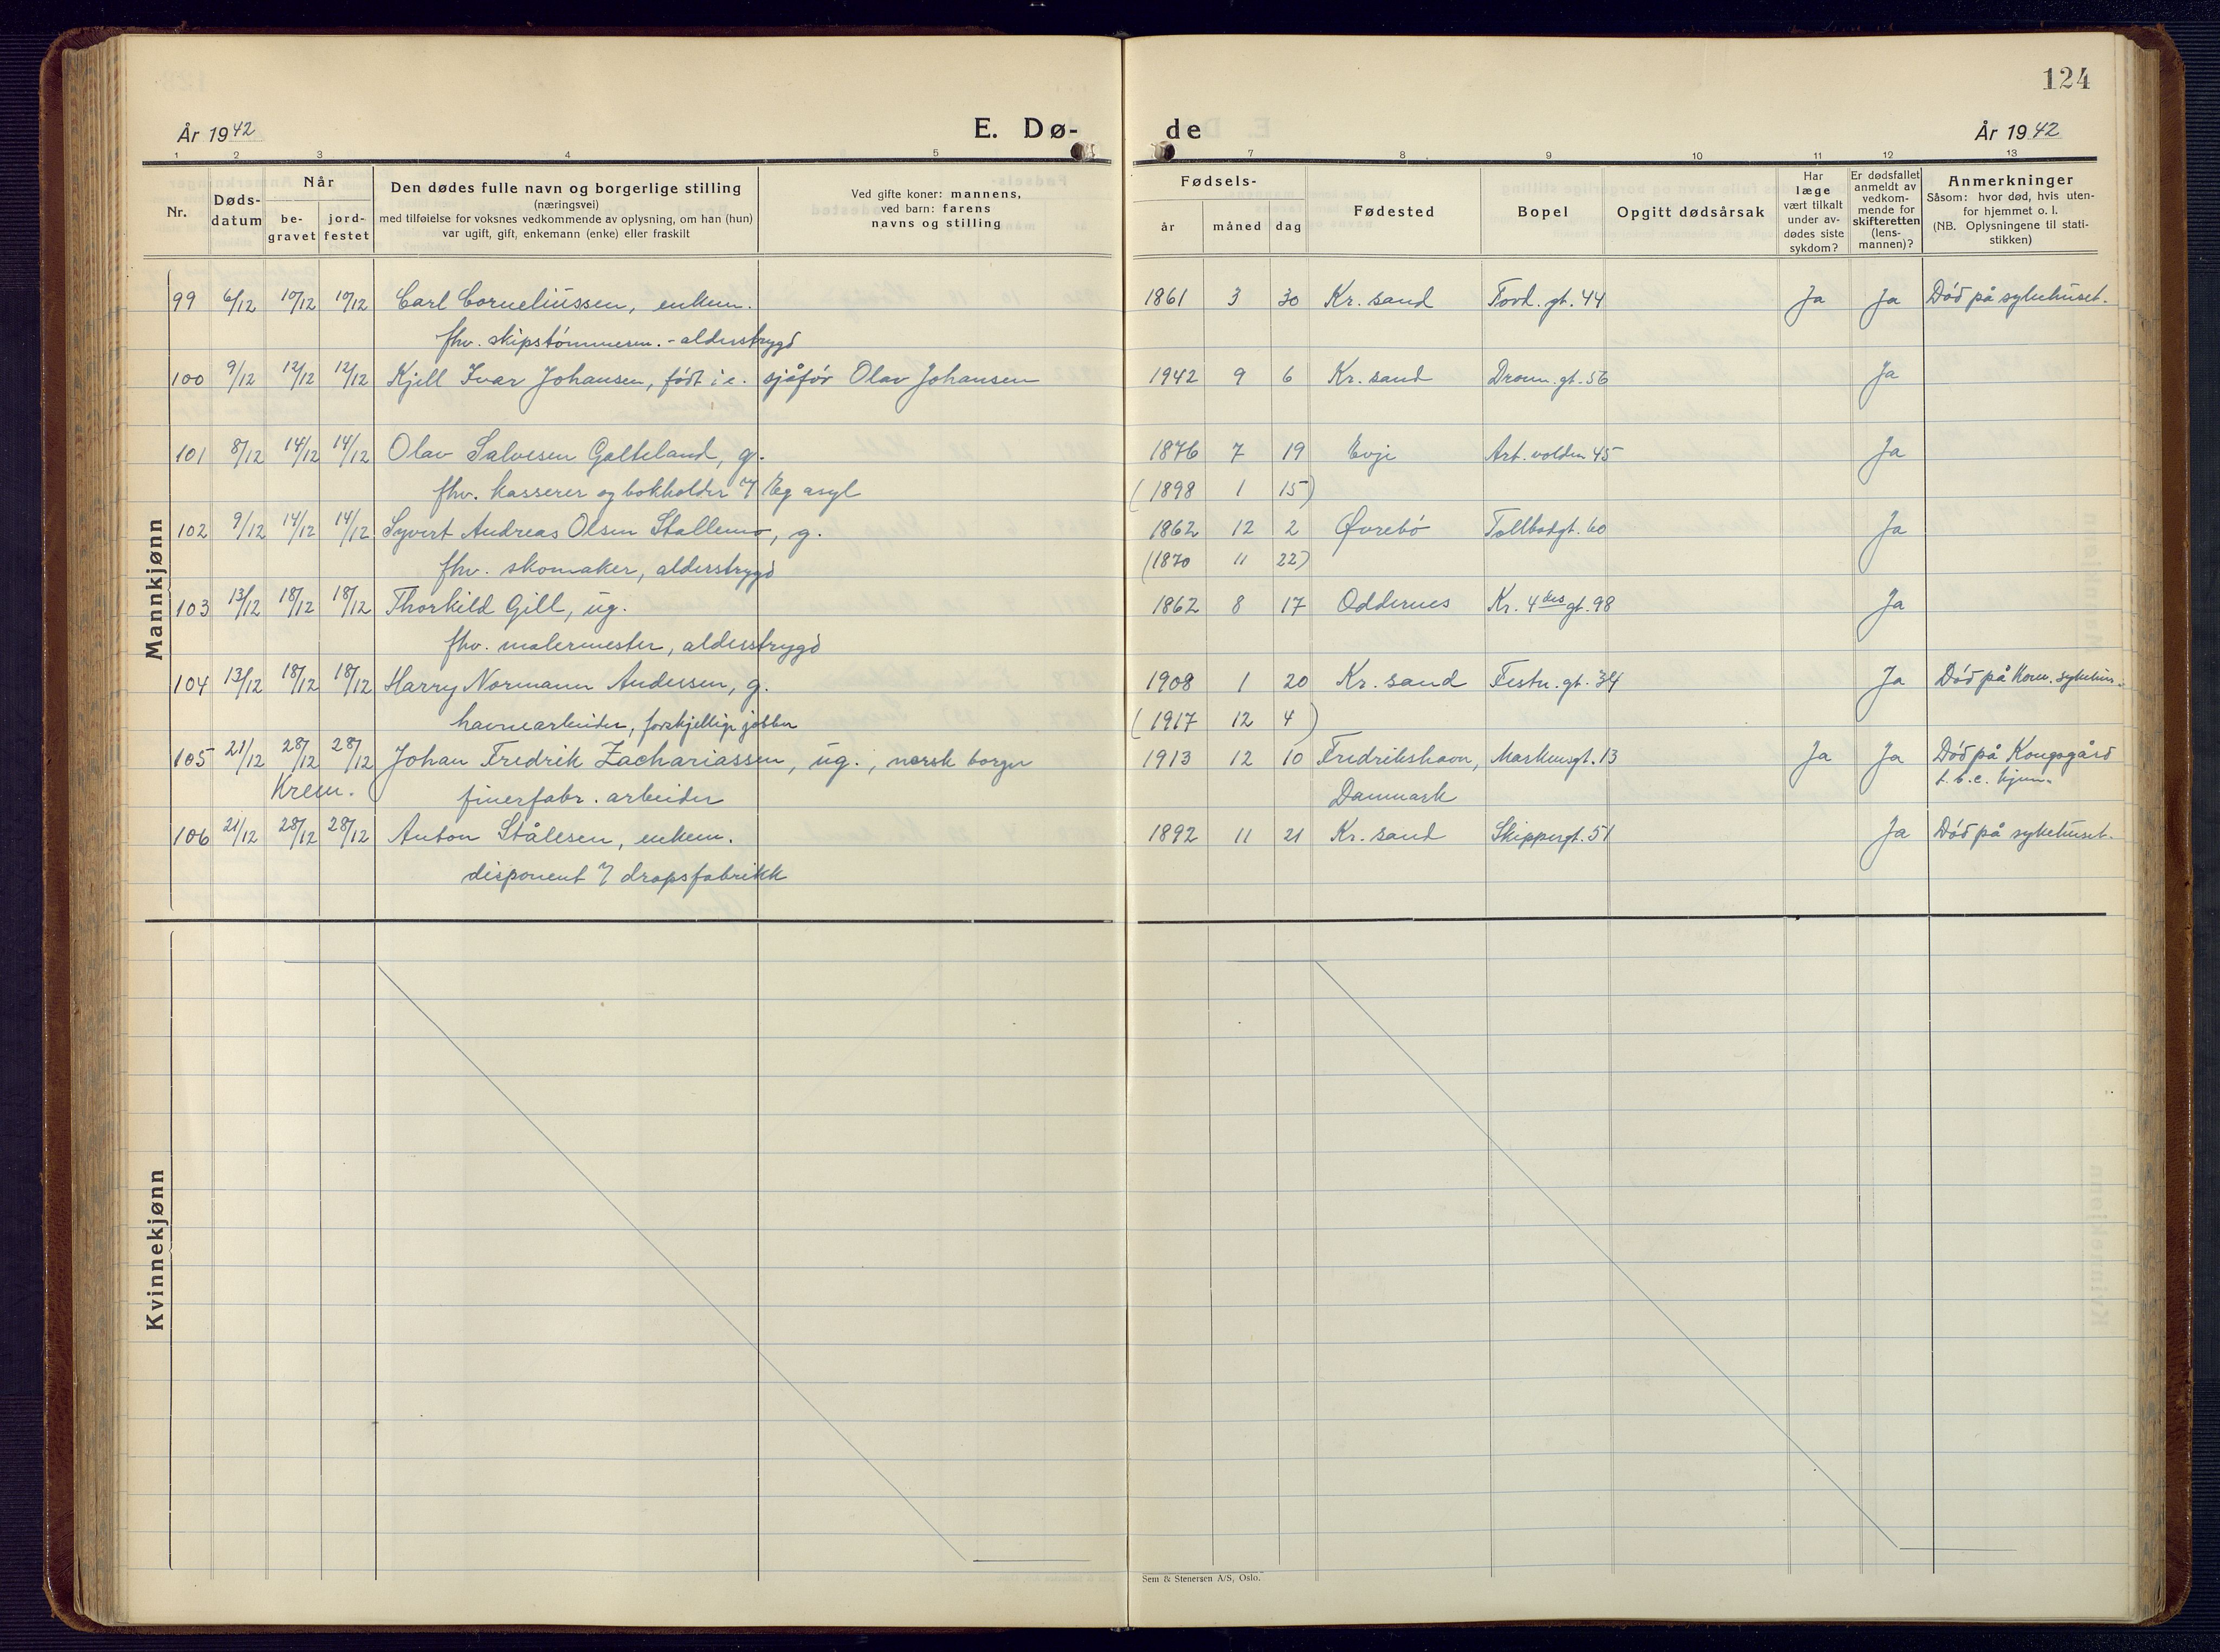 124
År 1942 E. Dø- de År 1942
1 2 3 4 5 7 8 9 10 11 12 13
Nr.
Døds-
datum
Når
be-
gravet
jord-
festet
Den dødes fulle navn og borgerlige stilling
(næringsvei)
med tilføielse for voksnes vedkommende av oplysning, om han (hun)
var ugift, gift, enkemann (enke) eller fraskilt
Ved gifte koner: mannens,
ved barn: farens
navns og stilling
Fødsels-
år måned dag
Fødested
Bopel
Opgitt dødsårsak
Har
læge
vært tilkalt
under av-
dødes siste
sykdom?
Er dødsfallet
anmeldt av
vedkom-
mende for
skifteretten
(lens-
mannen)?
Anmerkninger
Såsom: hvor død, hvis uten-
for hjemmet o. l.
(NB. Oplysningene til stati-
stikken)
Mannkjønn
99 6/12 10/12 10/12 Carl Corneliussen, enkem. 1861 3 30 Kr. sand Tord. gt. 44 Ja Ja Død på sykehuset.
fhv. skipstømmerm. - alderstrygd
100 9/12 12/12 12/12 Kjell Ivar Johansen, født i e. sjåfør Olav Johansen 1942 9 6 Kr. sand Dronn. gt. 56 Ja
101 8/12 14/12 14/12 Olav Salvesen Galteland, g. 1876 7 19 Evje Art. volden 45 Ja
fhv. kasserer og bokholder v/ Eg asyl (1898 1 15)
102 9/12 14/12 14/12 Syvert Andreas Olsen Stallemo, g. 1862 12 2 Øvrebø Tollbodgt. 60 Ja
fhv. skomaker, alderstrygd (1870 11 22)
103 13/12 18/12 18/12 Thorkild Gill, ug. 1862 8 17 Oddernes Kr. 4des gt. 98 Ja
fhv. malermester, alderstrygd
104 13/12 18/12 18/12 Harry Normann Andersen, g. 1908 1 20 Kr. sand Festn. gt. 34 Ja Død på Kom. sykehus.
havnearbeider, forskjellige jobber (1917 12 4)
105 21/12 28/12 28/12 Johan Fredrik Zachariassen, ug., norsk borger 1913 12 10 Fredrikshavn, Markensgt. 13 Ja Ja Død på Kongsgård
Krem. finerfabr. arbeider Danmark t.b.c. hjem.
106 21/12 28/12 28/12 Anton Stålesen, enkem. 1892 11 21 Kr. sand Skippergt. 51 Ja Død på sykehuset.
disponent v/ dropsfabrikk
Kvinnekjønn
Sem & Stenersen A/S, Oslo.